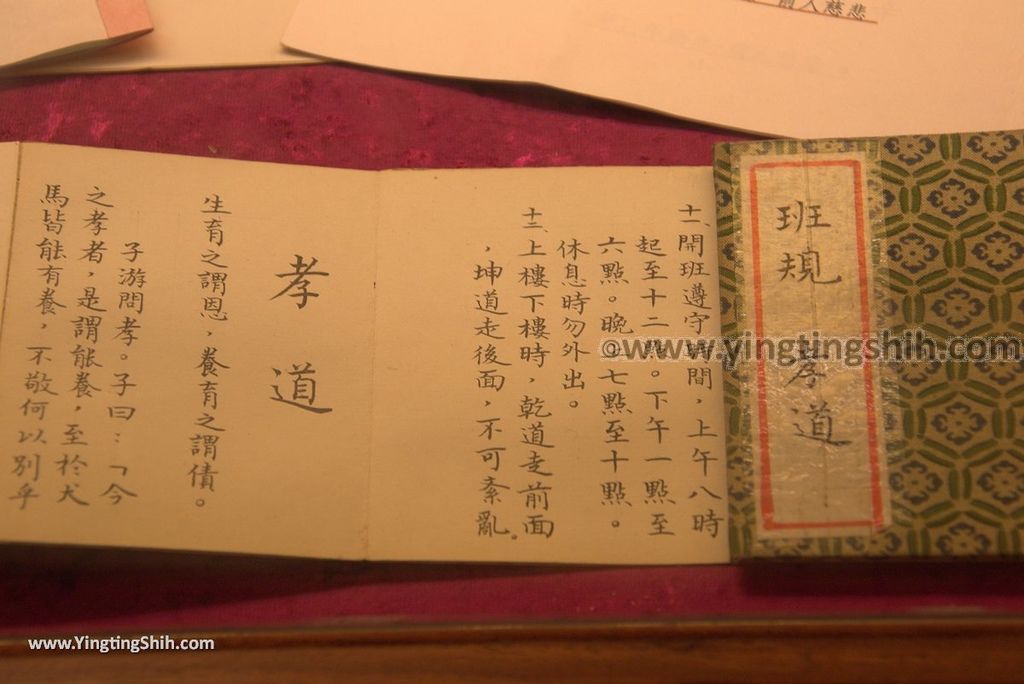 個人慈悲
班規 孝道
十一、開班遵守時間，上午八時
起至十二點。下午一點至
六點。晚上七點至十點。
休息時勿外出。
十二、上樓下樓時，乾道走前面
，坤道走後面，不可紊亂。
孝道
生育之謂恩，養育之謂債。
子游問孝。子曰：「今
之孝者，是謂能養，至於犬
馬皆能有養，不敬何以別乎
@www.yingtingshih.com
www.YingtingShih.com